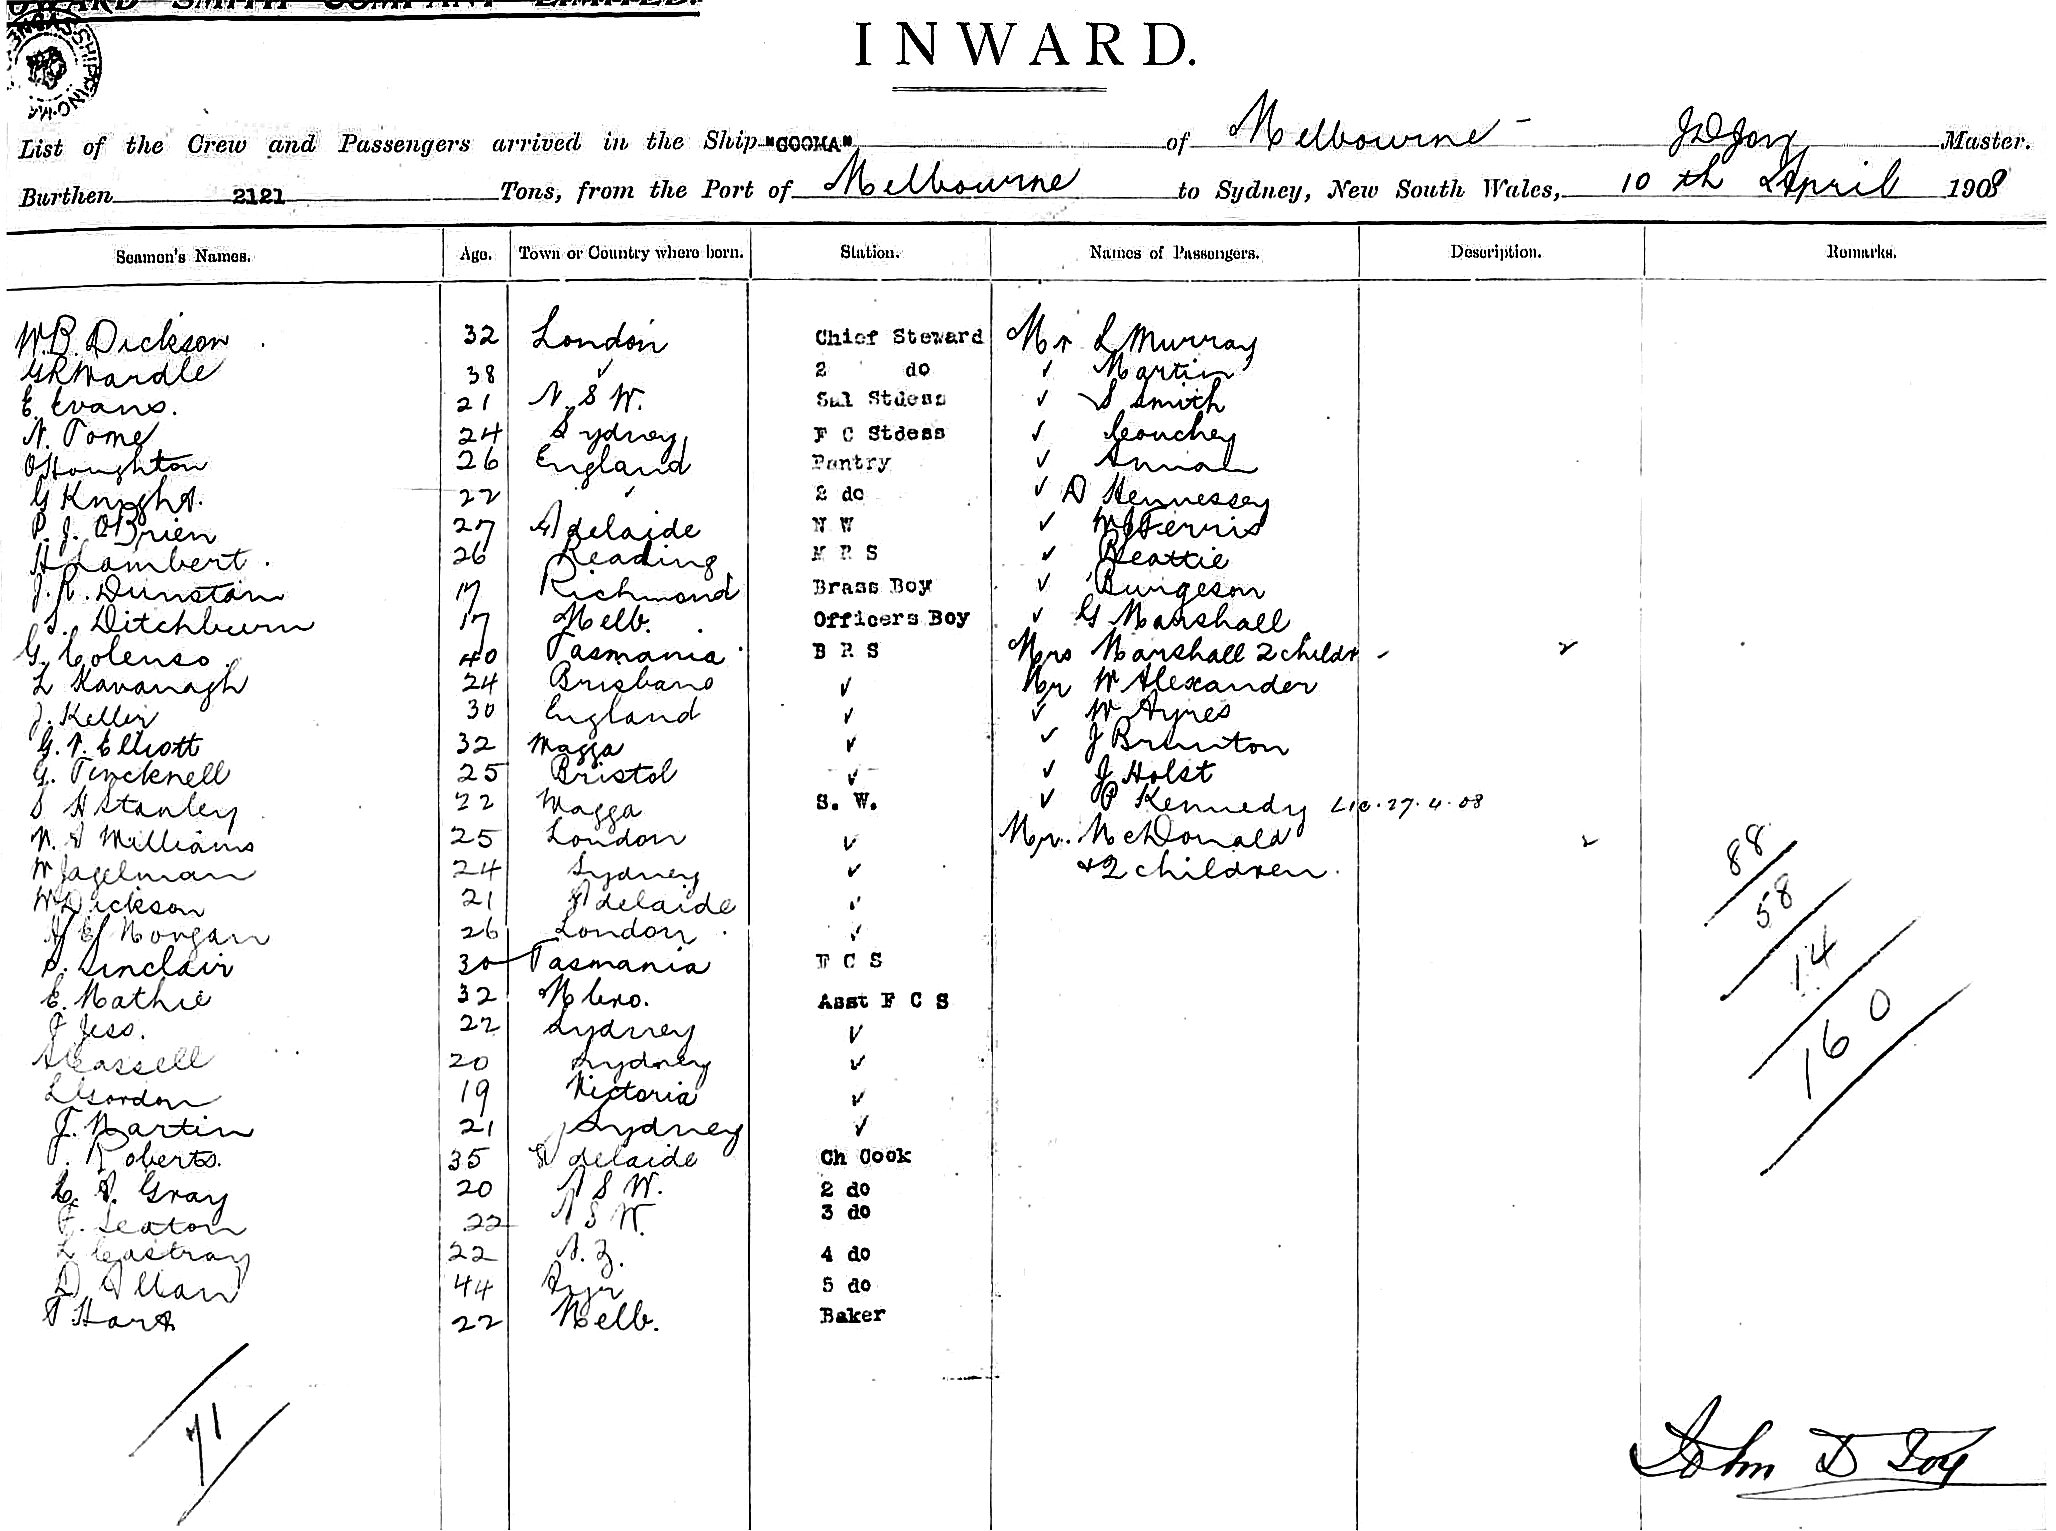 HOWARD SMITH COMPANY LIMITED.
INWARD.
List of the Crew and Passengers arrived in the Ship "COOMA" of Melbourne - J D Joy Master.
Burthen 2121 Tons, from the Port of Melbourne to Sydney, New South Wales, 10th April 1908
Seamen's Names. Age. Town or Country where born. Station. Names of Passengers. Description. Remarks.
W.B. Dickson 32 London Chief Steward Mr L Murray
G R Wardle 38 ✓ 2 do ✓ Martin
E. Evans. 21 N. S W. Sal Stdess ✓ S Smith
N. Tome 24 Sydney F C Stdess ✓ Couchey
O Houghton 26 England Pantry ✓
G Knight. 22 ✓ 2 do ✓ D Hennessey
P. J. O'Brien 27 Adelaide N W ✓ W J Ferris
H Lambert. 26 Reading M R S ✓ Beattie
J. R. Dunstan 17 Richmond Brass Boy ✓ Burgeson
S. Ditchburn 17 Melb. Officers Boy ✓ G Marshall
G. Colenso 40 Tasmania B R S Mrs Marshall 2 childr - 2
L Kavanagh 24 Brisbane ✓ Mr W Alexander
J. Keller 30 England ✓ ✓ W Ayres
G. V. Elliott 32 Wagga ✓ ✓ J Brunton
G. Tincknell 25 Bristol ✓ ✓ J Holst
S H Stanley 22 Wagga S. W. ✓ P Kennedy Lic. 27.4.08
N. A Williams 25 London ✓ Mr. McDonald 2
W Jagelman 24 Sydney ✓ & 2 children.
W Dickson 21 Adelaide ✓
H E Morgan 26 London ✓
P. Sinclair 30 Tasmania F C S
E. Mathie 32 Asst F C S
J Jess. 22 Sydney ✓
A Cassell 20 Sydney ✓
L Gordon 19 Victoria ✓
J. Martin 21 Sydney ✓
Roberts. 35 Adelaide Ch Cook
C. A. Gray 20 N S W. 2 do
F. Seaton 22 N S W. 3 do
L Castray 22 N. Z. 4 do
D Allan 44 Ayr 5 do
T Hart 22 Melb. Baker
88
58
14
160
71
John D Joy